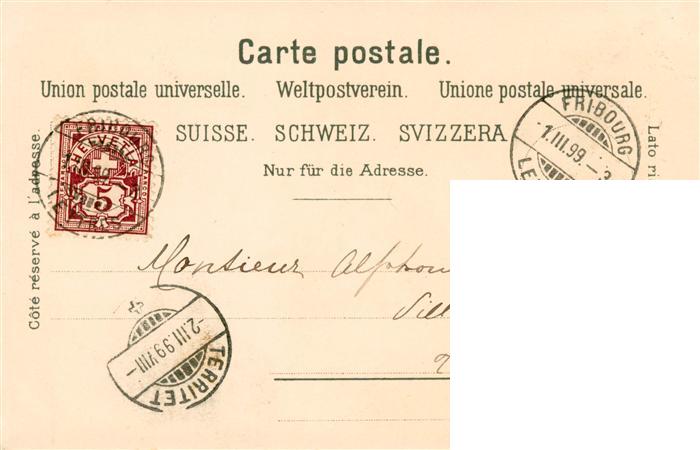 Carte postale.
Union postale universelle. Weltpostverein. Unione postale universale.
SUISSE. SCHWEIZ. SVIZZERA
Nur für die Adresse.
Côté réservé à l'adresse.
Lato ri
HELVETIA
5
FRIBOURG
1.III.99.–3
LE
Monsieur Alphon
Vill
TERRITET
–2.III.99.VIII–